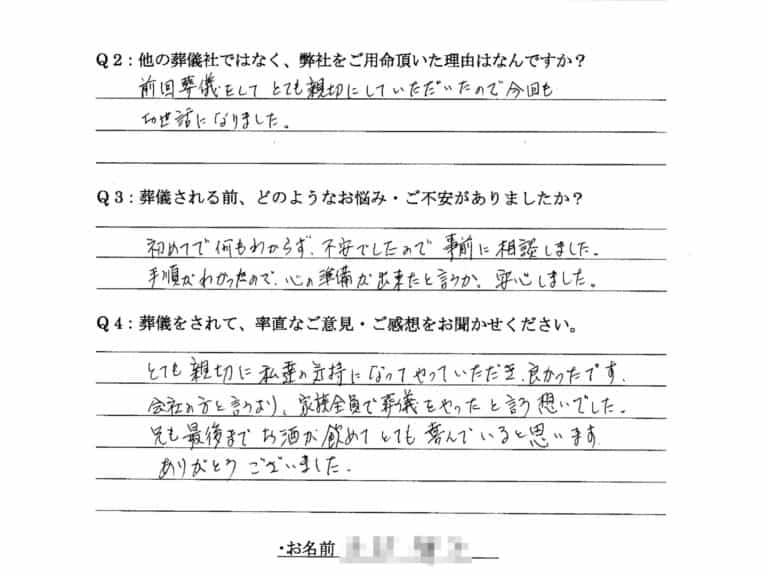 Q2:他の葬儀社ではなく、弊社をご用命頂いた理由はなんですか?
前回葬儀をして とても親切にしていただいたので今回も
お世話になりました。
Q3:葬儀される前、どのようなお悩み・ご不安がありましたか?
初めてで何もわからず、不安でしたので 事前に相談しました。
手順がわかったので、心の準備が出来たと言うか、安心しました。
Q4:葬儀をされて、率直なご意見・ご感想をお聞かせください。
とても親切に私達の気持になってやっていただき、良かったです。
会社の方と言うより、家族全員で葬儀をやったと言う想いでした。
兄も最後までお酒が飲めてとても喜んでいると思います
ありがとうございました。
・お名前